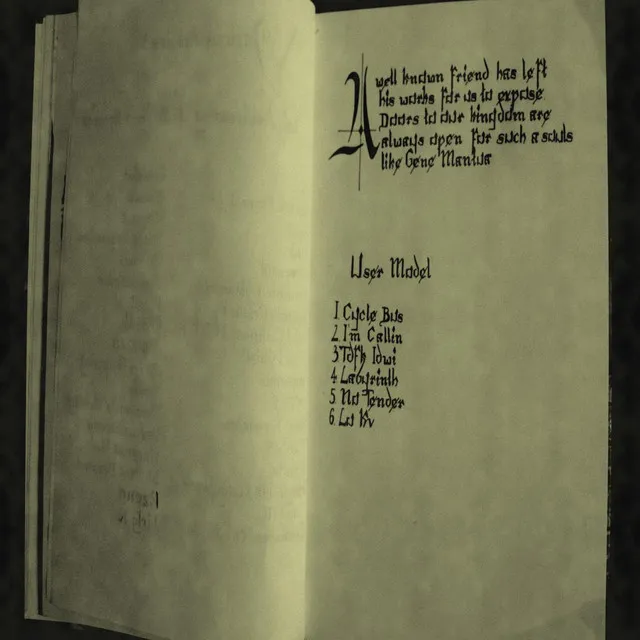 A well known friend has left
his works for us to expose
Doors to our kingdom are
always open for such a souls
like Gene Mantus
User Model
1 Cycle Bus
2 I'm Callin
3 Idwi
4 Labyrinth
5 No Tender
6 Lo